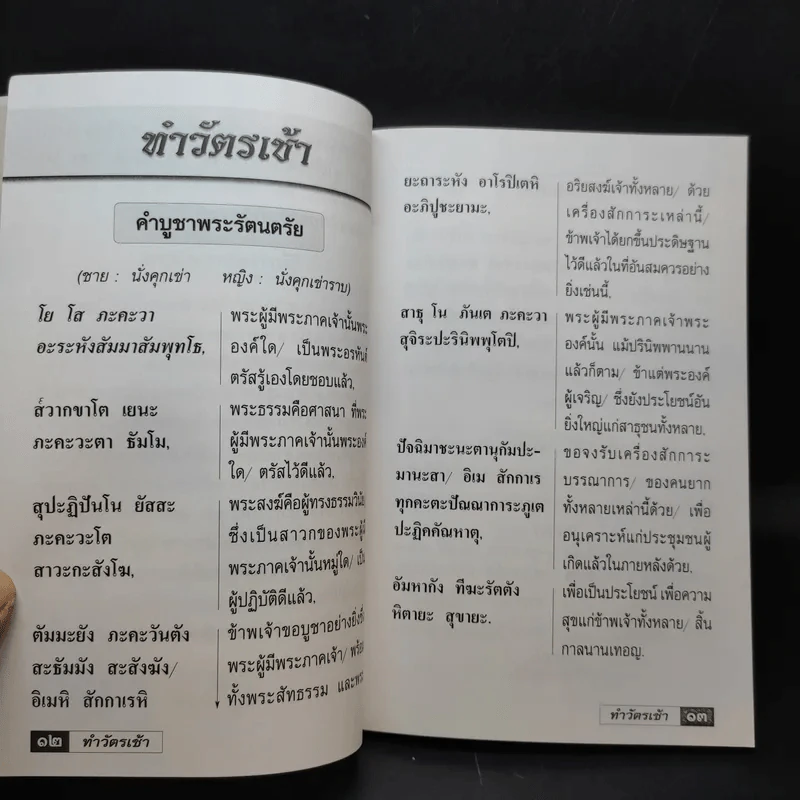 ทำวัตรเช้า
คำบูชาพระรัตนตรัย
(ชาย : นั่งคุกเข่า หญิง : นั่งคุกเข่าราบ)
โย โส ภะคะวา
อะระหังสัมมาสัมพุทโธ,
พระผู้มีพระภาคเจ้านั้นพระ
องค์ใด/ เป็นพระอรหันต์
ตรัสรู้เองโดยชอบแล้ว,
ส๎วากขาโต เยนะ
ภะคะวะตา ธัมโม,
พระธรรมคือศาสนา ที่พระ
ผู้มีพระภาคเจ้านั้นพระองค์
ใด/ ตรัสไว้ดีแล้ว,
สุปะฏิปันโน ยัสสะ
ภะคะวะโต
สาวะกะสังโฆ,
พระสงฆ์คือผู้ทรงธรรมวินัย
ซึ่งเป็นสาวกของพระผู้มี
พระภาคเจ้านั้นหมู่ใด/ เป็น
ผู้ปฏิบัติดีแล้ว,
ตัมมะยัง ภะคะวันตัง
สะธัมมัง สะสังฆัง/
อิเมหิ สักกาเรหิ
ข้าพเจ้าขอบูชาอย่างยิ่งซึ่ง
พระผู้มีพระภาคเจ้า/ พร้อม
ทั้งพระสัทธรรม และพระ
๑๒ ทำวัตรเช้า
ยะถาระหัง อาโรปิเตหิ
อะภิปูชะยามะ,
อริยสงฆ์เจ้าทั้งหลาย/ ด้วย
เครื่องสักการะเหล่านี้/
ข้าพเจ้าได้ยกขึ้นประดิษฐาน
ไว้ดีแล้วในที่อันสมควรอย่าง
ยิ่งเช่นนี้,
สาธุ โน ภันเต ภะคะวา
สุจิระปะรินิพพุโตปิ,
พระผู้มีพระภาคเจ้าพระ
องค์นั้น แม้ปรินิพพานนาน
แล้วก็ตาม/ ข้าแต่พระองค์
ผู้เจริญ/ ซึ่งยังประโยชน์อัน
ยิ่งใหญ่แก่สาธุชนทั้งหลาย,
ปัจฉิมาชะนะตานุกัมปะ-
มานะสา/ อิเม สักกาเร
ทุกคะตะปัณณาการะภูเต
ปะฏิคคัณหาตุ,
ขอจงรับเครื่องสักการะ
บรรณาการ/ ของคนยาก
ทั้งหลายเหล่านี้ด้วย/ เพื่อ
อนุเคราะห์แก่ประชุมชนผู้
เกิดแล้วในภายหลังด้วย,
อัมหากัง ทีฆะรัตตัง
หิตายะ สุขายะ.
เพื่อเป็นประโยชน์ เพื่อความ
สุขแก่ข้าพเจ้าทั้งหลาย/ สิ้น
กาลนานเทอญ.
ทำวัตรเช้า ๑๓